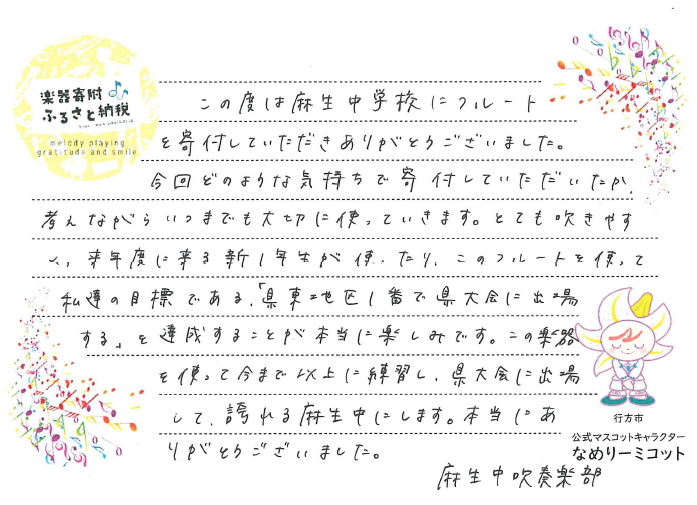 楽器寄附
ふるさと納税
melody playing
gratitude and smile
この度は麻生中学校にフルート
を寄付していただきありがとうございました。
今回どのような気持ちで寄付していただいたか、
考えながらいつまでも大切に使っていきます。とても吹きやす
い、来年度に来る新1年生が使ったり、このフルートを使って
私達の目標である、「県東地区1番で県大会に出場
する」を達成することが本当に楽しみです。この楽器
を使って今まで以上に練習し、県大会に出場
して、誇れる麻生中にします。本当にあ
りがとうございました。
麻生中吹奏楽部
行方市
公式マスコットキャラクター
なめりーミコット